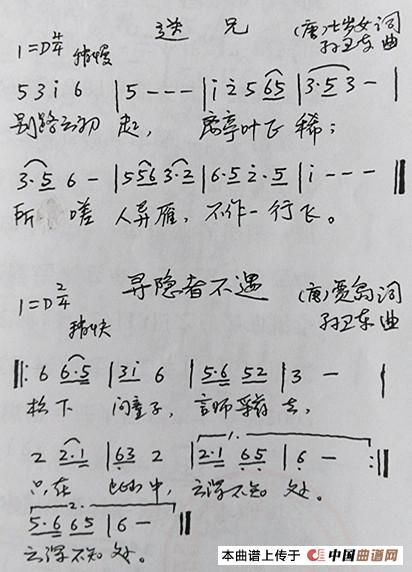 送兄
1=D 4/4 稍慢 (唐)七岁女 词
孙卫东 曲
5 3 i 6 | 5 - - - | i 2 5 65 | 3·5 3 - |
别路云初 起, 离亭叶飞 稀;
3·5 6 - | 556 3·2 | 6·5 2·5 | i - - - ‖
所 嗟 人异雁, 不作一行飞。
寻隐者不遇
1=D 2/4 稍快 (唐)贾岛 词
孙卫东 曲
‖: 6 6·5 | 3i 6 | 5·6 52 | 3 - |
松下 问童子, 言师采药 去,
2 2·1 | 63 2 | 1. 2·1 65 | 6 - :‖
只在 此山中, 云深不知 处。
2. 5·6 65 | 6 - ‖
云深不知 处。
本曲谱上传于 中国曲谱网